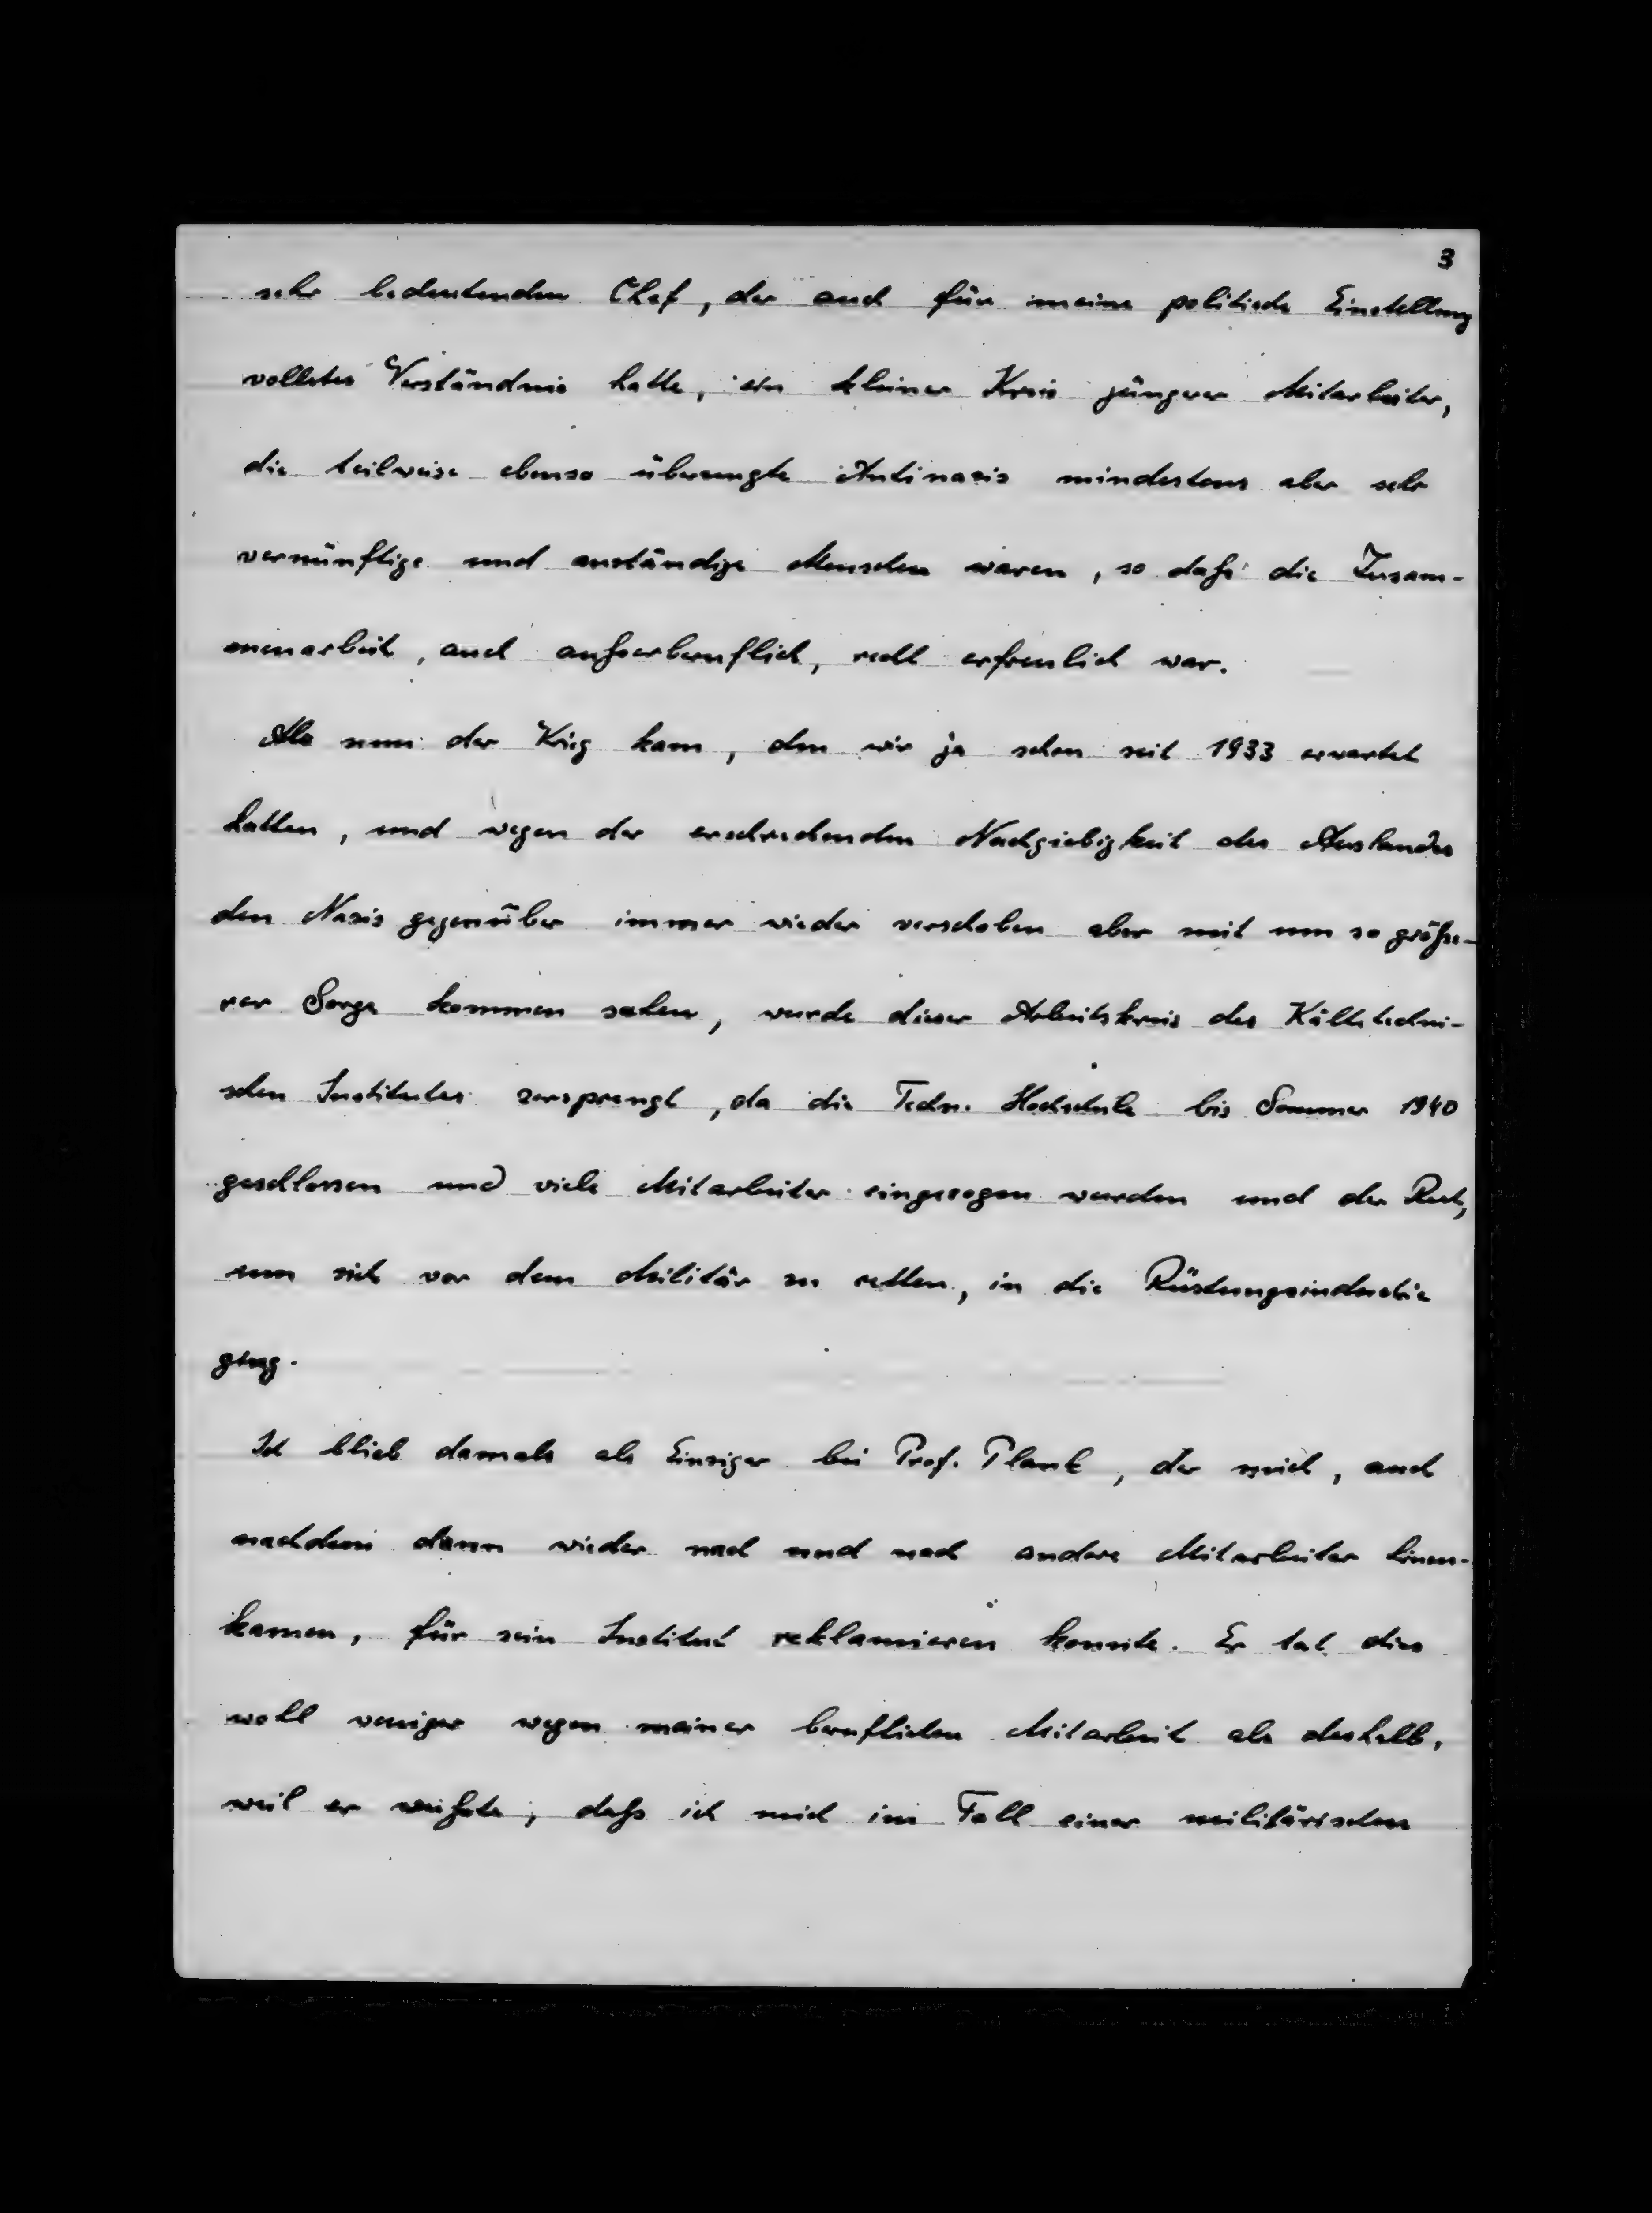 3
sehr bedeutenden Chef, der auch für meine politische Einstellung
vollstes Verständnis hatte, ein kleiner Kreis jüngerer Mitarbeiter,
die teilweise ebenso überzeugte Antinazis mindestens aber sehr
vernünftige und anständige Menschen waren, so daß die Zusam-
menarbeit, auch außerberuflich, recht erfreulich war.
Als nun der Krieg kam, den wir ja schon seit 1933 erwartet
hatten, und wegen der erschreckenden Nachgiebigkeit des Auslandes
den Nazis gegenüber immer wieder verschoben aber mit um so größe-
rer Sorge kommen sahen, wurde dieser Arbeitskreis des Kältetechni-
schen Institutes zersprengt, da die Techn. Hochschule bis Sommer 1940
geschlossen und viele Mitarbeiter eingezogen wurden und der Rest,
um sich vor dem Militär zu retten, in die Rüstungsindustrie
ging.
Ich blieb damals als Einziger bei Prof. Plank, der mich, auch
nachdem dann wieder nach und nach andere Mitarbeiter hinzu-
kamen, für sein Institut reklamieren konnte. Er tat dies
wohl weniger wegen meiner beruflichen Mitarbeit als deshalb,
weil er wußte, daß ich mich im Fall einer militärischen